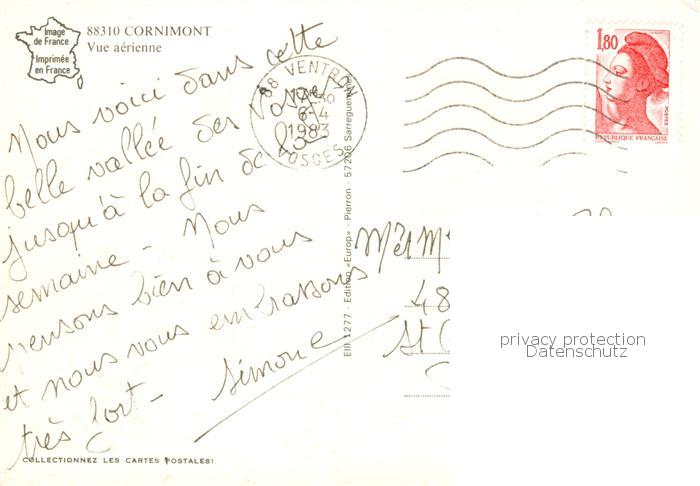 Image
de France
Imprimée
en France
88310 CORNIMONT
Vue aérienne
Nous voici dans cette
belle vallée des Vosges
jusqu'à la fin de la
semaine - Nous
pensons bien à vous
et nous vous embrassons
très fort - Simone
COLLECTIONNEZ LES CARTES POSTALES!
88 VENTRON
6-4
1983
VOSGES
EIII 1277 - Edition «Europ» - Pierron - 57206 Sarreguemines
1,80
POSTES
REPUBLIQUE FRANÇAISE
48
St
privacy protection
Datenschutz